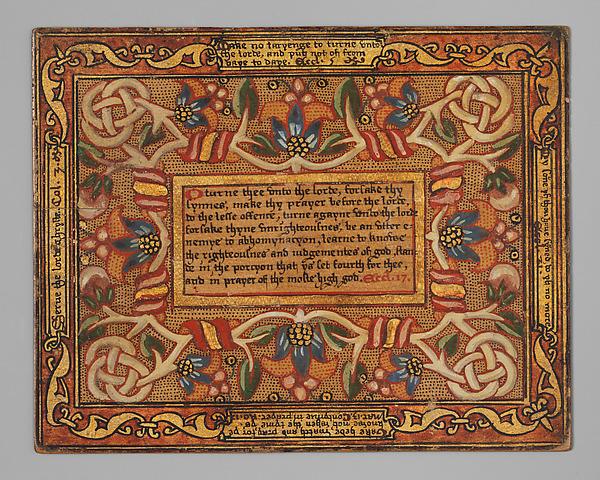 Make no taryenge to turne vnto
the lorde, and put not of from
daye to daye. Eccl. 5
O turne thee vnto the lorde, forsake thy
synnes, make thy prayer before the lorde,
do the lesse offence, turne agayne vnto the lorde
forsake thyne vnrighteousnes, be an vtter e-
nemye to abhomynacyon, learne to knowe
the righteousnes and iudgementes of god, stan-
de in the porcyon that ys set fourth for thee,
and in prayer of the moste high god. Eccl. 17.
Serue the lord chryste. Col. 3.
Take hede, watch and pray, for ye
knowe not when the tyme ys.
Mar. 13. Contynue in prayer. Ro. 12